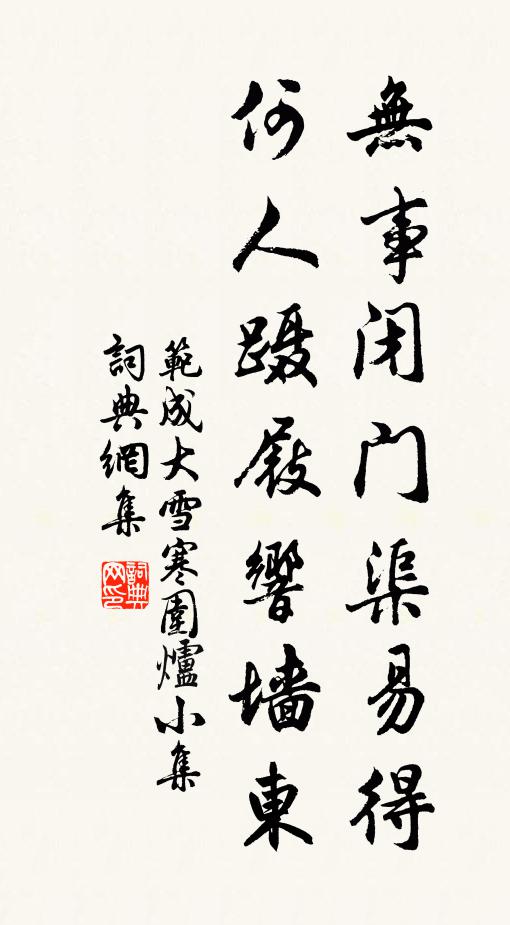 無事闭门渠易得
何人蹑屐響墙東
範成大雪寒圍爐小集
詞典網集
詞典网印